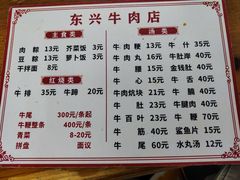 东兴牛肉店
主食类
肉粽 13元 芥菜饭 3元
豆粽 13元 萝卜饭 3元
干拌面 8元
红烧类
牛排 35元 牛蹄 20元
牛尾 300元/条起
牛鞭整条 400元/条
青菜 8-20元
拼盘 面议
汤类
牛肉粳 13元 牛什 35元
牛肉丸 16元 牛肚岸 40元
牛腰 15元 金钱肚 40元
牛心 15元 牛舌 40元
牛肉炕块 21元 牛腩 40元
牛肚 21元 牛腱肉 40元
牛百叶 23元 牛鞭 70元
牛筋 45元 鲨鱼片 15元
牛尾 60元 水丸汤 12元